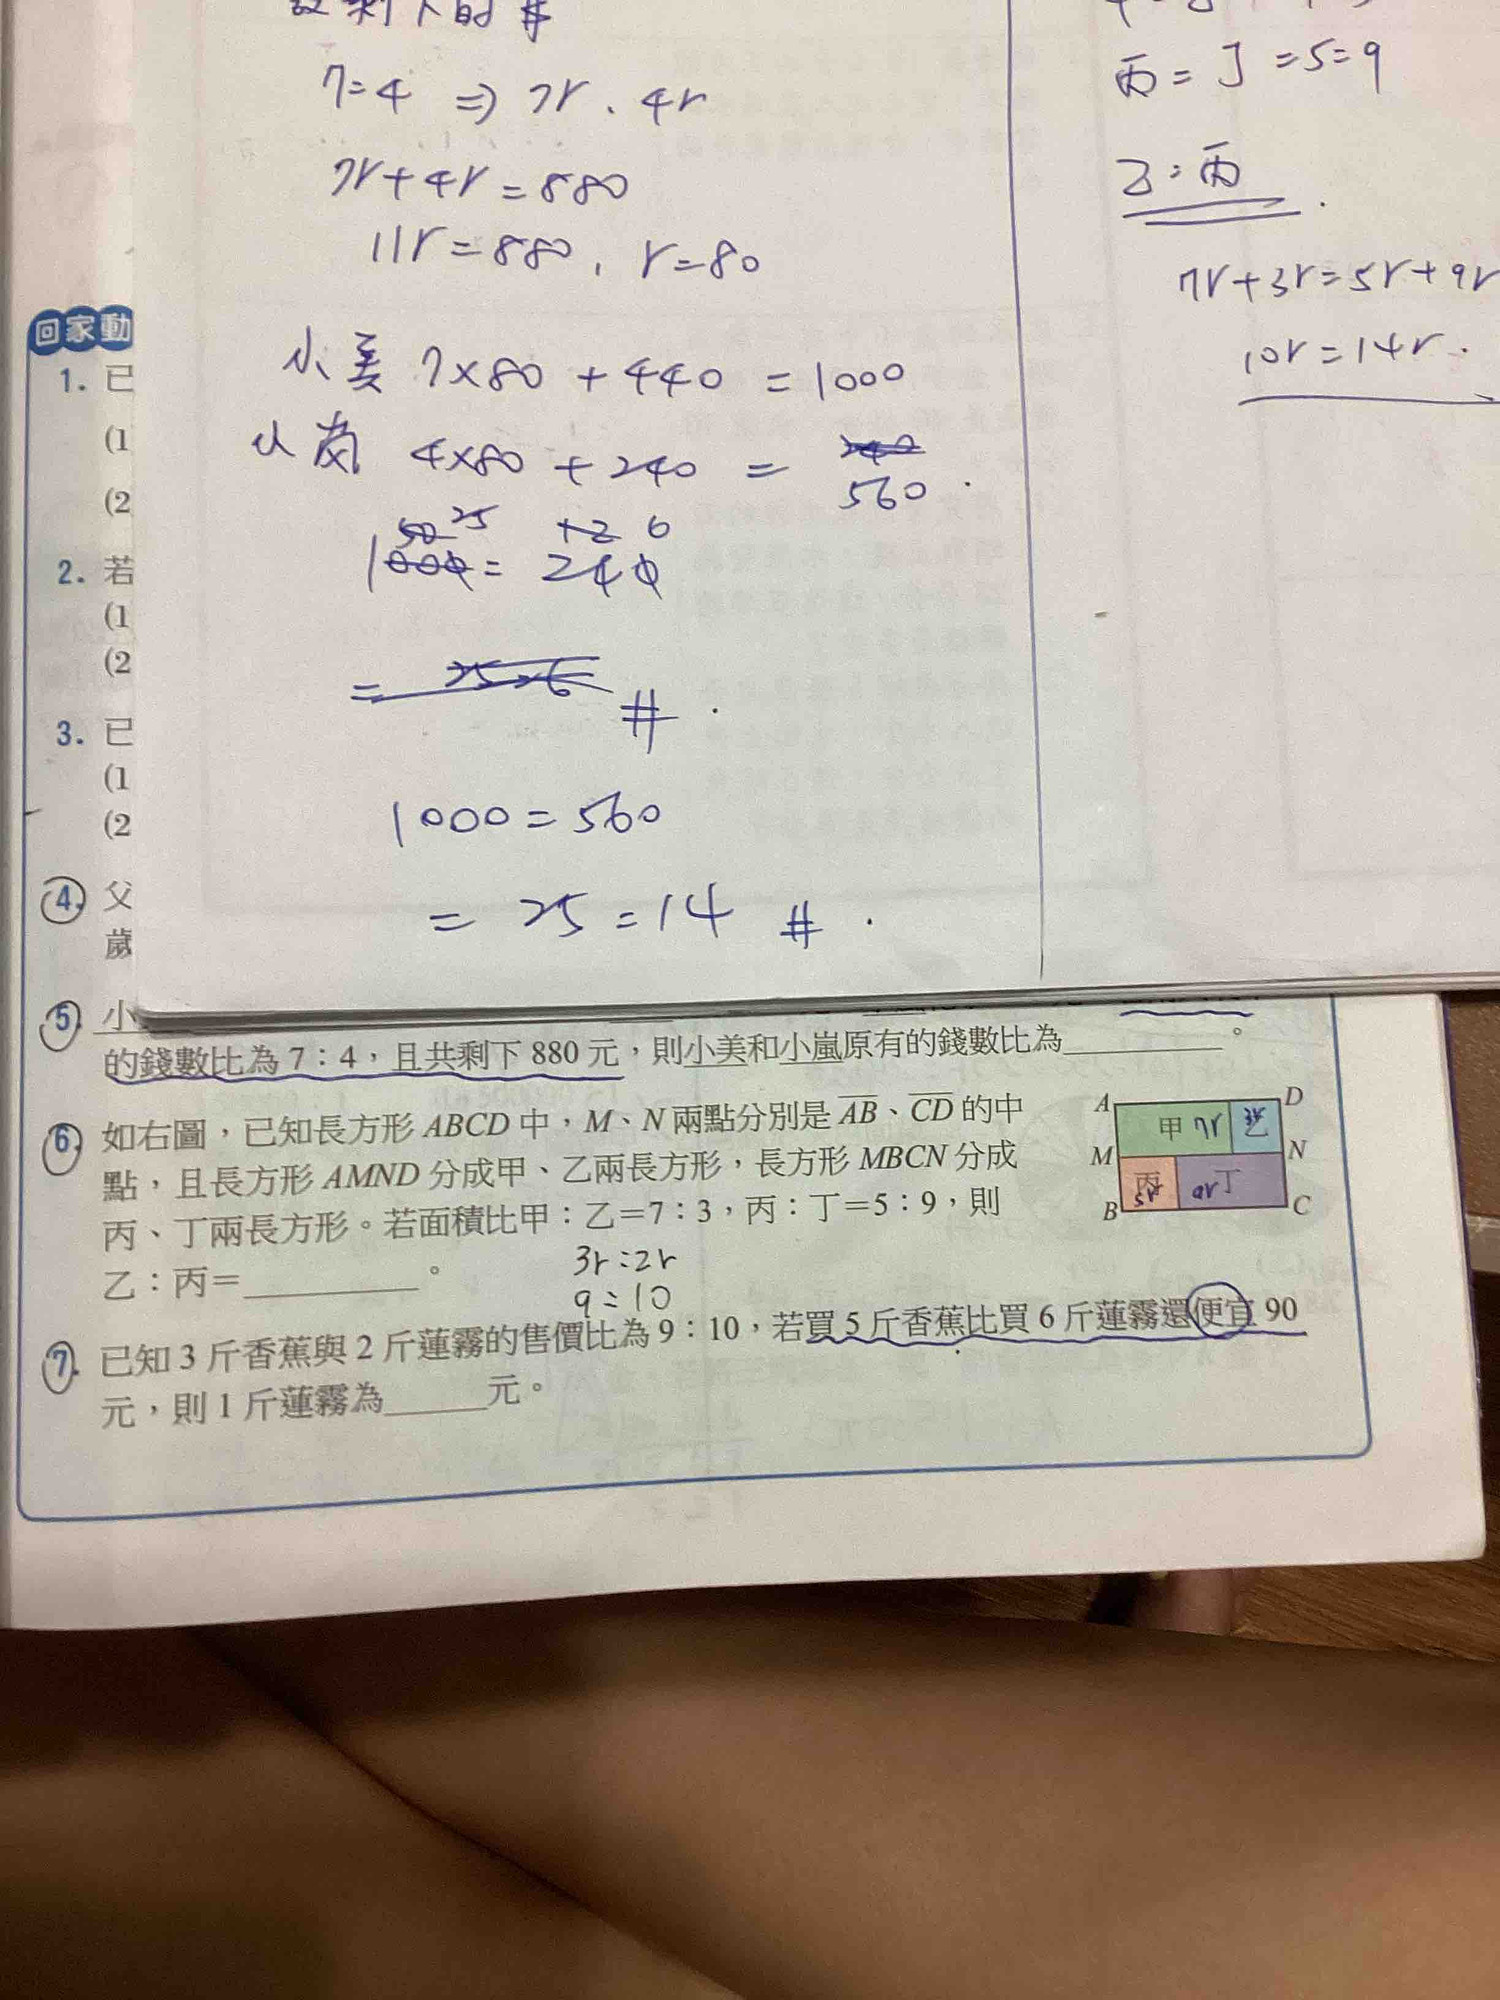 剩下的 #
7=4 ⇒ 7r、4r
7r+4r=880
11r=880, r=80
小美 7×80+440=1000
小嵐 4×80+240=
560.
25 6
=
#.
1000=560
=25=14 #.
丙=丁=5=9
乙:丙.
7r+3r=5r+9r
10r=14r.
回家動
1. 已
(1
(2
2. 若
(1
(2
3. 已
(1
(2
4. 父
歲
5. 小
的錢數比為 7:4,且共剩下 880 元,則小美和小嵐原有的錢數比為________。
6. 如右圖,已知長方形 ABCD 中,M、N 兩點分別是 AB、CD 的中
點,且長方形 AMND 分成甲、乙兩長方形,長方形 MBCN 分成
丙、丁兩長方形。若面積比甲:乙=7:3,丙:丁=5:9,則
乙:丙=________。
A D
甲 7r 乙 3r
M N
丙 5r 9r 丁
B C
3r:2r
9:10
7. 已知 3 斤香蕉與 2 斤蓮霧的售價比為 9:10,若買 5 斤香蕉比買 6 斤蓮霧還便宜 90
元,則 1 斤蓮霧為_____元。